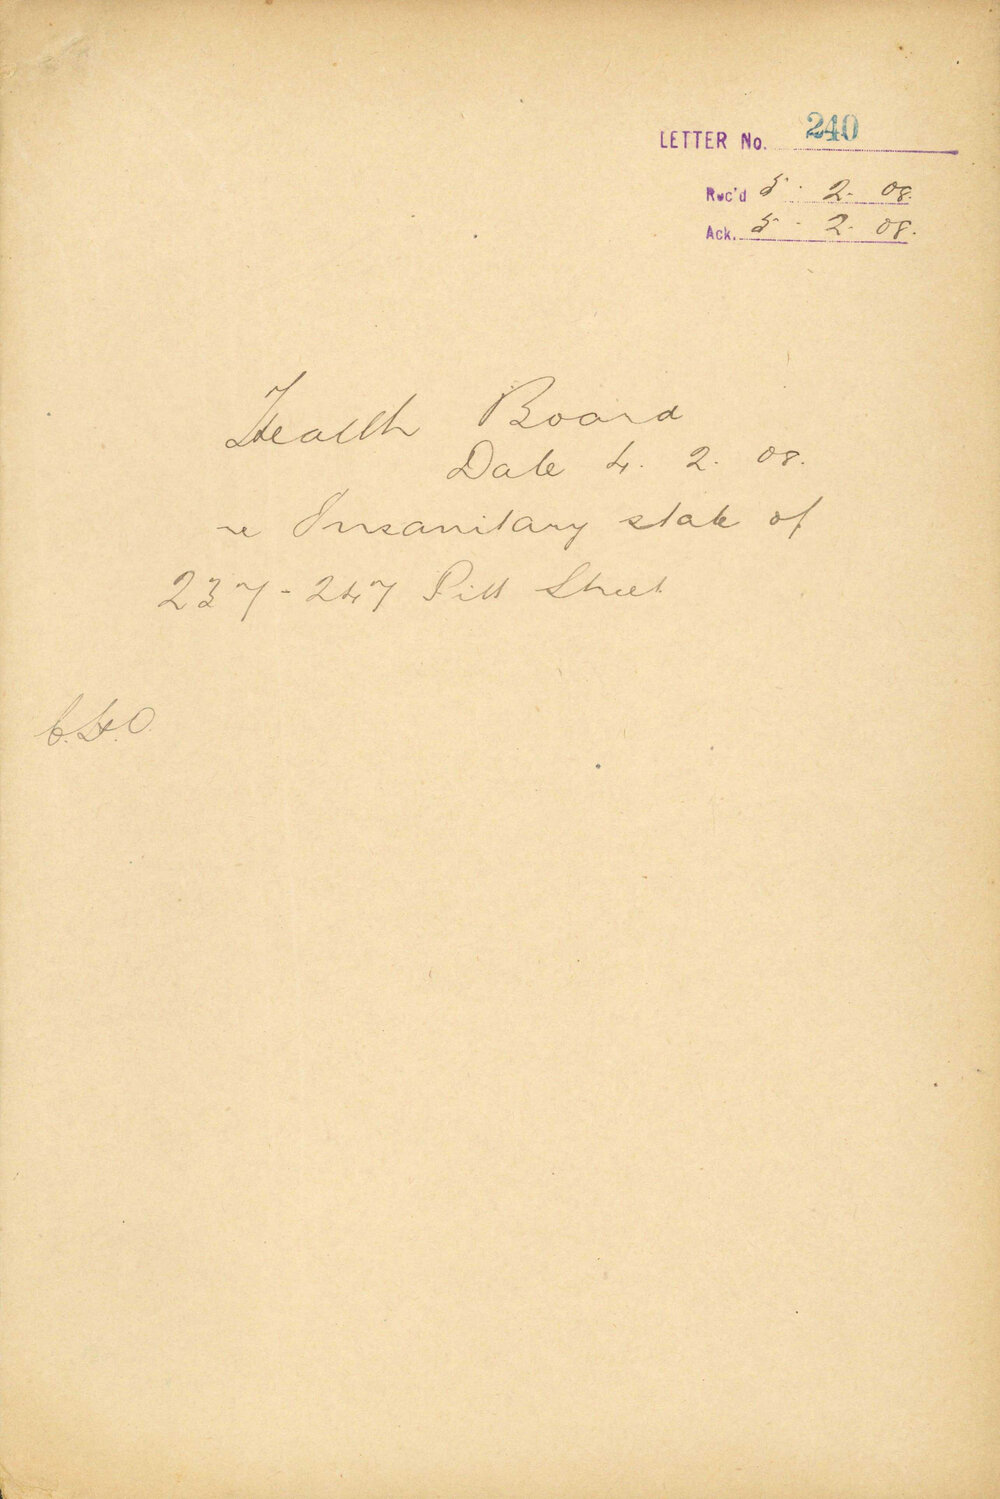 LETTER No. 240
Rec'd 5. 2. 08.
Ack. 5. 2. 08.
Health Board
Date 4. 2. 08.
re Insanitary state of
237-247 Pitt Street
C.H.O.